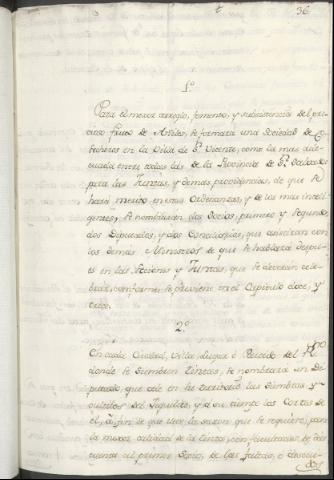 36
1.º
Para el mayor arreglo, fomento, y subsistencia del pre-
cioso fruto de Añiles, se formará una Sociedad de Co-
secheros en la Villa de Sn Vicente, como la mas ade-
cuada entre todas las de la Provincia de Sn Salvador
para las Juntas, y demas providencias, de que se
hará merito en estas Ordenanzas, y de los mas inteli-
gentes, se nombrarán dos Socios, primero y segundo,
dos Diputados, y dos Conciliarios, que asistiran con
los demas Ministros de que se hablará despu-
es en las Sesiones y Juntas, que se deverán cele-
brar, conforme se previene en el Capitulo doce, y
trece.
2.º
En cada Ciudad, Villa, Lugar, ó Partido del
donde se siembren tintas, se nombrará un Di-
putado, que cele en su territorio las Siembras y
cultibos del Jiquilite, y á su tiempo los Cortes de
él, á fin de que llese la sazon que se requiere, para
la mayor utilidad de la tinta, con facultades, de dar
cuenta al primer Socio, de las faltas, ó descui-
dos